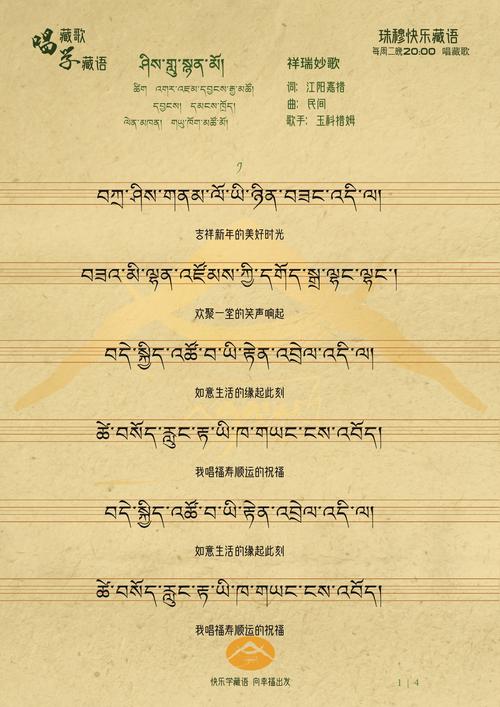 唱藏歌
学藏语
ཤིས་གླུ་སྙན་མོ།
ཚིག འགར་འཇམ་དབྱངས་རྒྱ་མཚོ།
དབྱངས། དམངས་ཁྲོད།
ལེན་མཁན། གཡུ་ཁོག་མཚོ་མོ།
祥瑞妙歌
词: 江阳嘉措
曲: 民间
歌手: 玉科措姆
珠穆快乐藏语
每周二晚20:00 唱藏歌
༡
བཀྲ་ཤིས་གནམ་ལོ་ཡི་ཉིན་བཟང་འདི་ལ།
吉祥新年的美好时光
བཟའ་མི་ལྷན་འཛོམས་ཀྱི་དགོད་སྒྲ་ལྷང་ལྷང་།
欢聚一堂的笑声响起
བདེ་སྐྱིད་འཚོ་བ་ཡི་རྟེན་འབྲེལ་འདི་ལ།
如意生活的缘起此刻
ཚེ་བསོད་རླུང་རྟ་ཡི་ཁ་གཡང་ངས་འབོད།
我唱福寿顺运的祝福
བདེ་སྐྱིད་འཚོ་བ་ཡི་རྟེན་འབྲེལ་འདི་ལ།
如意生活的缘起此刻
ཚེ་བསོད་རླུང་རྟ་ཡི་ཁ་གཡང་ངས་འབོད།
我唱福寿顺运的祝福
快乐学藏语 向幸福出发
1 | 4